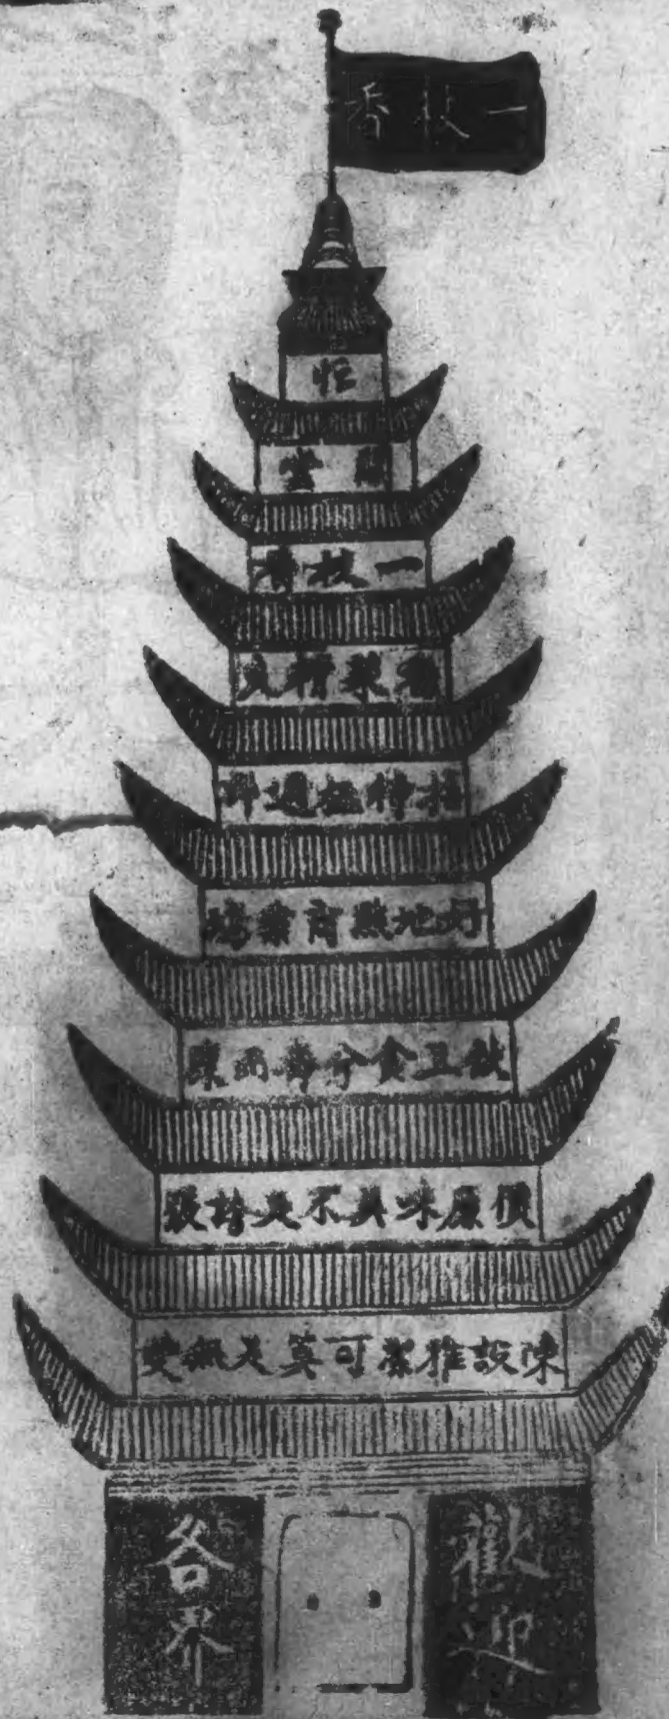 一枝香
一枝香
番菜精良
招待極週詳
好地點商業場
飲且食兮壽而康
價廉味美不是誇張
陳設雅潔可算是無雙
歡迎
各界